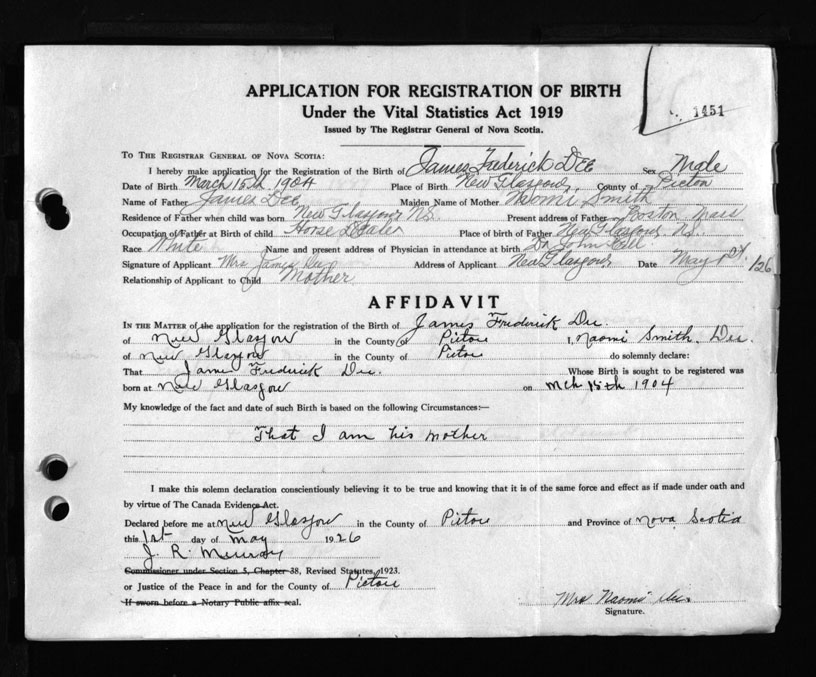 1451
APPLICATION FOR REGISTRATION OF BIRTH
Under the Vital Statistics Act 1919
Issued by The Registrar General of Nova Scotia.
TO THE REGISTRAR GENERAL OF NOVA SCOTIA:
I hereby make application for the Registration of the Birth of James Frederick DEE Sex Male
Date of Birth March 15th 1904 Place of Birth New Glasgow, County of Pictou
Name of Father James Dee Maiden Name of Mother Naomi Smith
Residence of Father when child was born New Glasgow N.S. Present address of Father Boston Mass
Occupation of Father at Birth of child Horse Dealer Place of birth of Father New Glasgow N.S.
Race White Name and present address of Physician in attendance at birth Dr. John
Signature of Applicant Mrs James Dee Address of Applicant New Glasgow Date May 1st /26
Relationship of Applicant to Child Mother
AFFIDAVIT
IN THE MATTER of the application for the registration of the Birth of James Frederick Dee.
of New Glasgow in the County of Pictou I, Naomi Smith Dee
of New Glasgow in the County of Pictou do solemnly declare:
That James Frederick Dee. Whose Birth is sought to be registered was
born at New Glasgow on Mch 15th 1904
My knowledge of the fact and date of such Birth is based on the following Circumstances:—
That I am his mother
I make this solemn declaration conscientiously believing it to be true and knowing that it is of the same force and effect as if made under oath and
by virtue of The Canada Evidence Act.
Declared before me at New Glasgow in the County of Pictou and Province of Nova Scotia
this 1st day of May 1926
J. R. Murray
Commissioner under Section 5, Chapter 38, Revised Statutes, 1923.
or Justice of the Peace in and for the County of Pictou
If sworn before a Notary Public affix seal.
Mrs Naomi Dee
Signature.